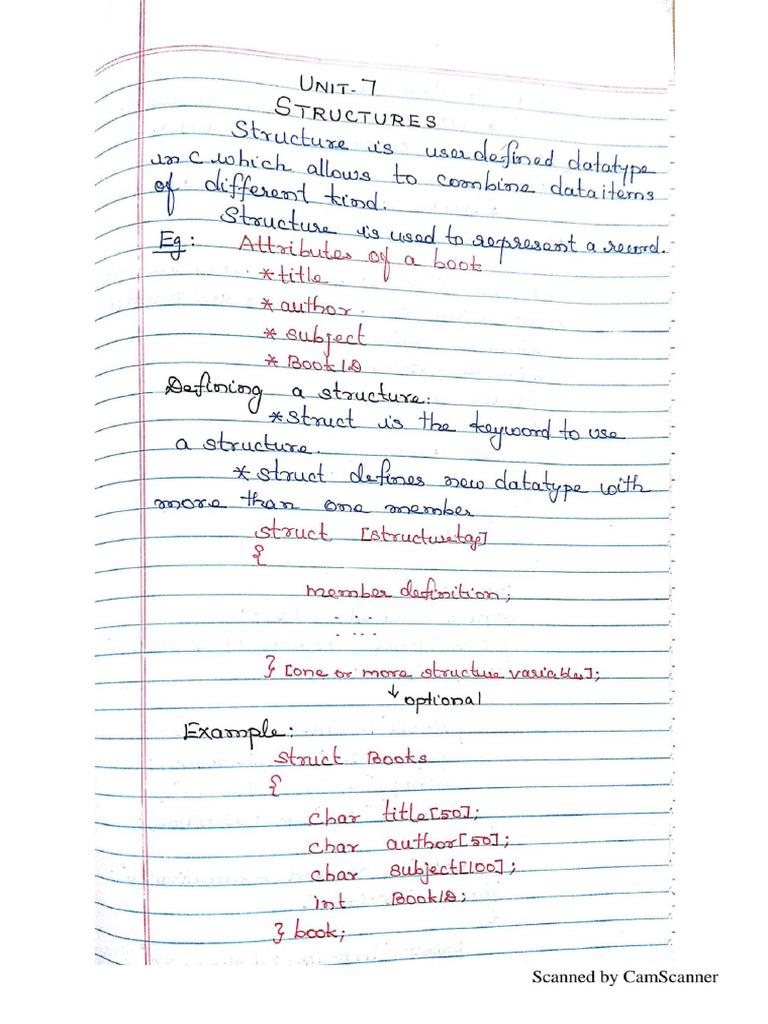 UNIT-7
STRUCTURES
Structure is userdefined datatype
in C which allows to combine dataitems
of different kind.
Structure is used to represent a record.
Eg: Attributes of a book
*title
*author
*subject
*BookID
Defining a structure:
*struct is the keyword to use
a structure.
*struct defines new datatype with
more than one member
struct [structuretag]
{
member definition;
. ...
. ...
} [one or more structure variables];
↓ optional
Example:
struct Books
{
char title[50];
char author[50];
char subject[100];
int BookID;
} book;
Scanned by CamScanner